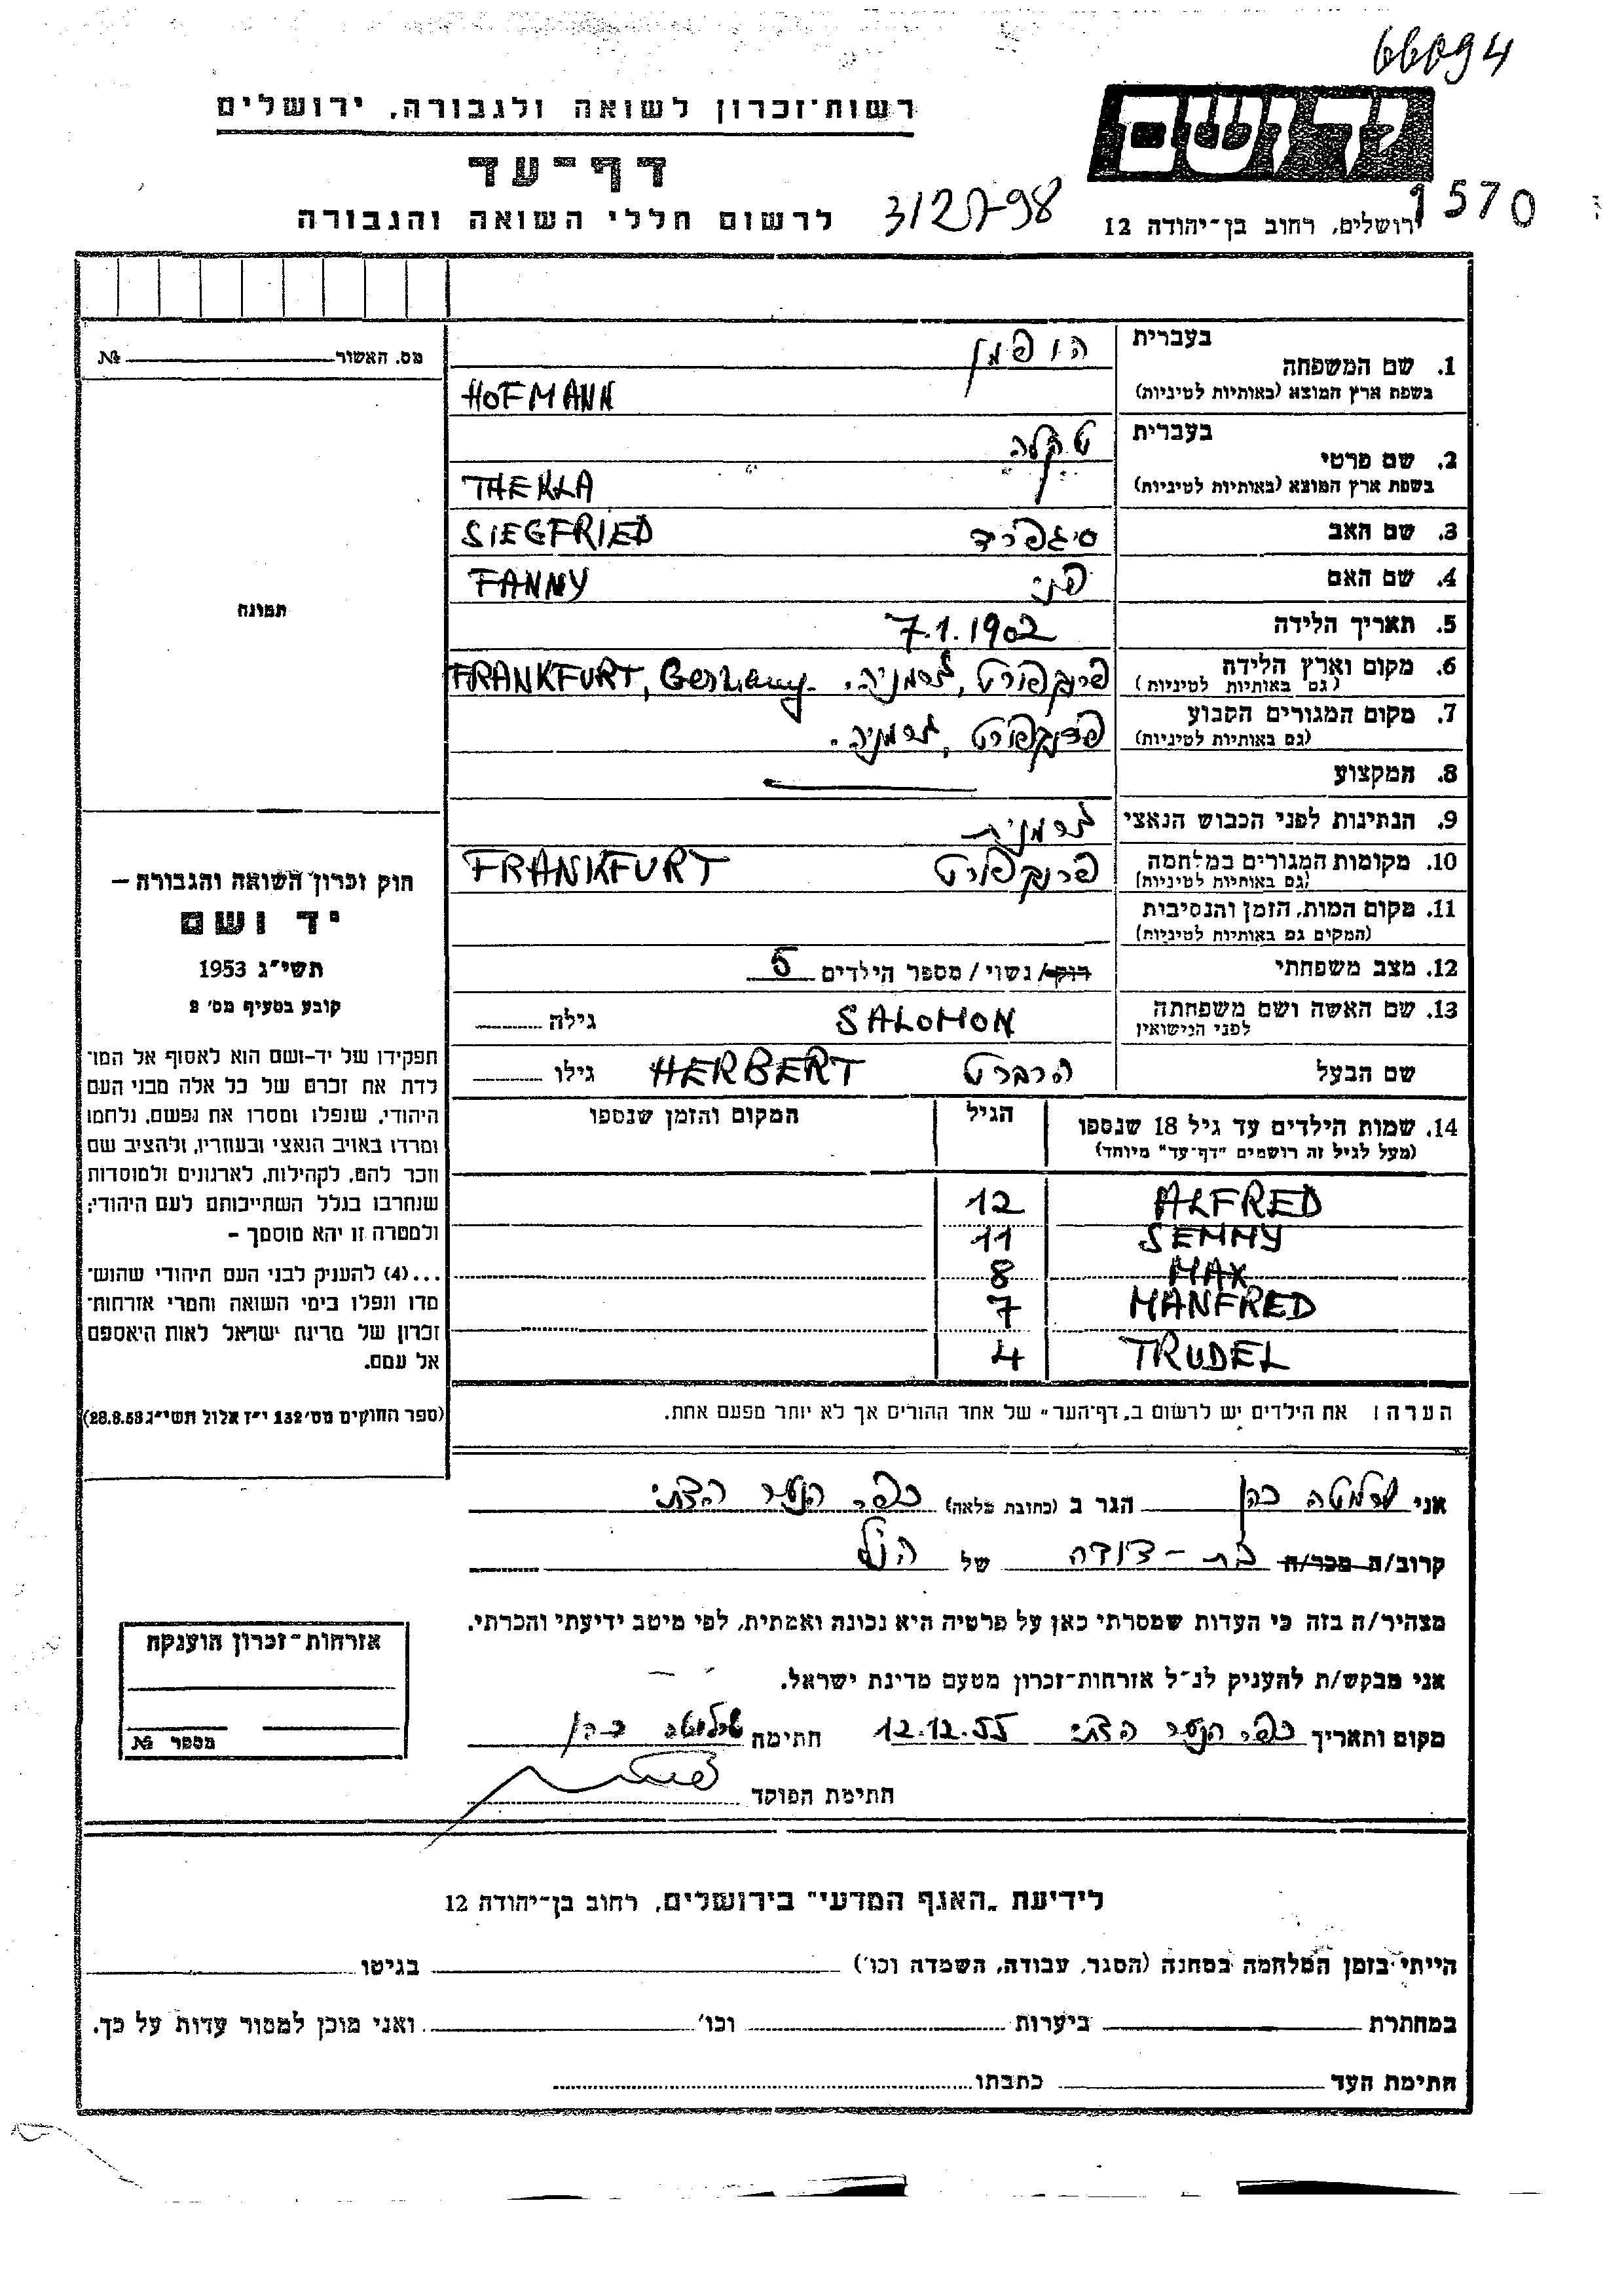 66094
רשות־זכרון לשואה ולגבורה, ירושלים
ידושם
דף־עד
1570
לרשום חללי השואה והגבורה
ירושלים, רחוב בן־יהודה 12
מס. האשור № 
בעברית
הופמן
1. שם המשפחה
בשפת ארץ המוצא (באותיות לטיניות)
HOFMANN
בעברית
טקלה
2. שם פרטי
בשפת ארץ המוצא (באותיות לטיניות)
THEKLA
3. שם האב סיגפריד SIEGFRIED
4. שם האם פני FANNY
תמונה
5. תאריך הלידה 7.1.1902
6. מקום וארץ הלידה פרנקפורט, גרמניה. FRANKFURT, Germany
(גם באותיות לטיניות)
7. מקום המגורים הקבוע פרנקפורט, גרמניה.
(גם באותיות לטיניות)
8. המקצוע
9. הנתינות לפני הכבוש הנאצי גרמנית
10. מקומות המגורים במלחמה פרנקפורט FRANKFURT
(גם באותיות לטיניות)
11. מקום המות, הזמן והנסיבות
(המקום גם באותיות לטיניות)
12. מצב משפחתי רוק/ נשוי / מספר הילדים 5
13. שם האשה ושם משפחתה
לפני הנישואין
SALOMON גילה
שם הבעל הרברט HERBERT גילו
14. שמות הילדים עד גיל 18 שנספו הגיל המקום והזמן שנספו
(מעל לגיל זה רושמים "דף־עד" מיוחד)
ALFRED 12
SEMMY 11
MAX 8
MANFRED 7
TRUDEL 4
הערה: את הילדים יש לרשום ב„דף־העד" של אחד ההורים אך לא יותר מפעם אחת.
חוק זכרון השואה והגבורה –
יד ושם
תשי"ג 1953
קובע בסעיף מס' 2
תפקידו של יד-ושם הוא לאסוף אל המו־
לדת את זכרם של כל אלה מבני העם
היהודי, שנפלו ומסרו את נפשם, נלחמו
ומרדו באויב הנאצי ובעוזריו, ולהציב שם
וזכר להם, לקהילות, לארגונים ולמוסדות
שנחרבו בגלל השתייכותם לעם היהודי;
ולמטרה זו יהא מוסמך –
...(4) להעניק לבני העם היהודי שהוש־
מדו ונפלו בימי השואה והמרי אזרחות־
זכרון של מדינת ישראל לאות היאספם
אל עמם.
(ספר החוקים מס' 132 י"ז אלול תשי"ג 28.8.53)
אני כהן הגר ב (כתובת מלאה) כפר הנוער הדתי
קרוב/ה מכר/ה בת-דודה של הנ"ל
מצהיר/ה בזה כי העדות שמסרתי כאן על פרטיה היא נכונה ואמתית, לפי מיטב ידיעתי והכרתי.
אני מבקש/ת להעניק לנ"ל אזרחות־זכרון מטעם מדינת ישראל.
מקום ותאריך כפר הנוער הדתי 12.12.55 חתימה כהן
חתימת הפוקד
אזרחות־זכרון הוענקה
מספר №
לידיעת „האגף המדעי" בירושלים, רחוב בן־יהודה 12
הייתי בזמן המלחמה במחנה (הסגר, עבודה, השמדה וכו') בגיטו
במחתרת ביערות וכו' ואני מוכן למסור עדות על כך.
חתימת העד כתבתו